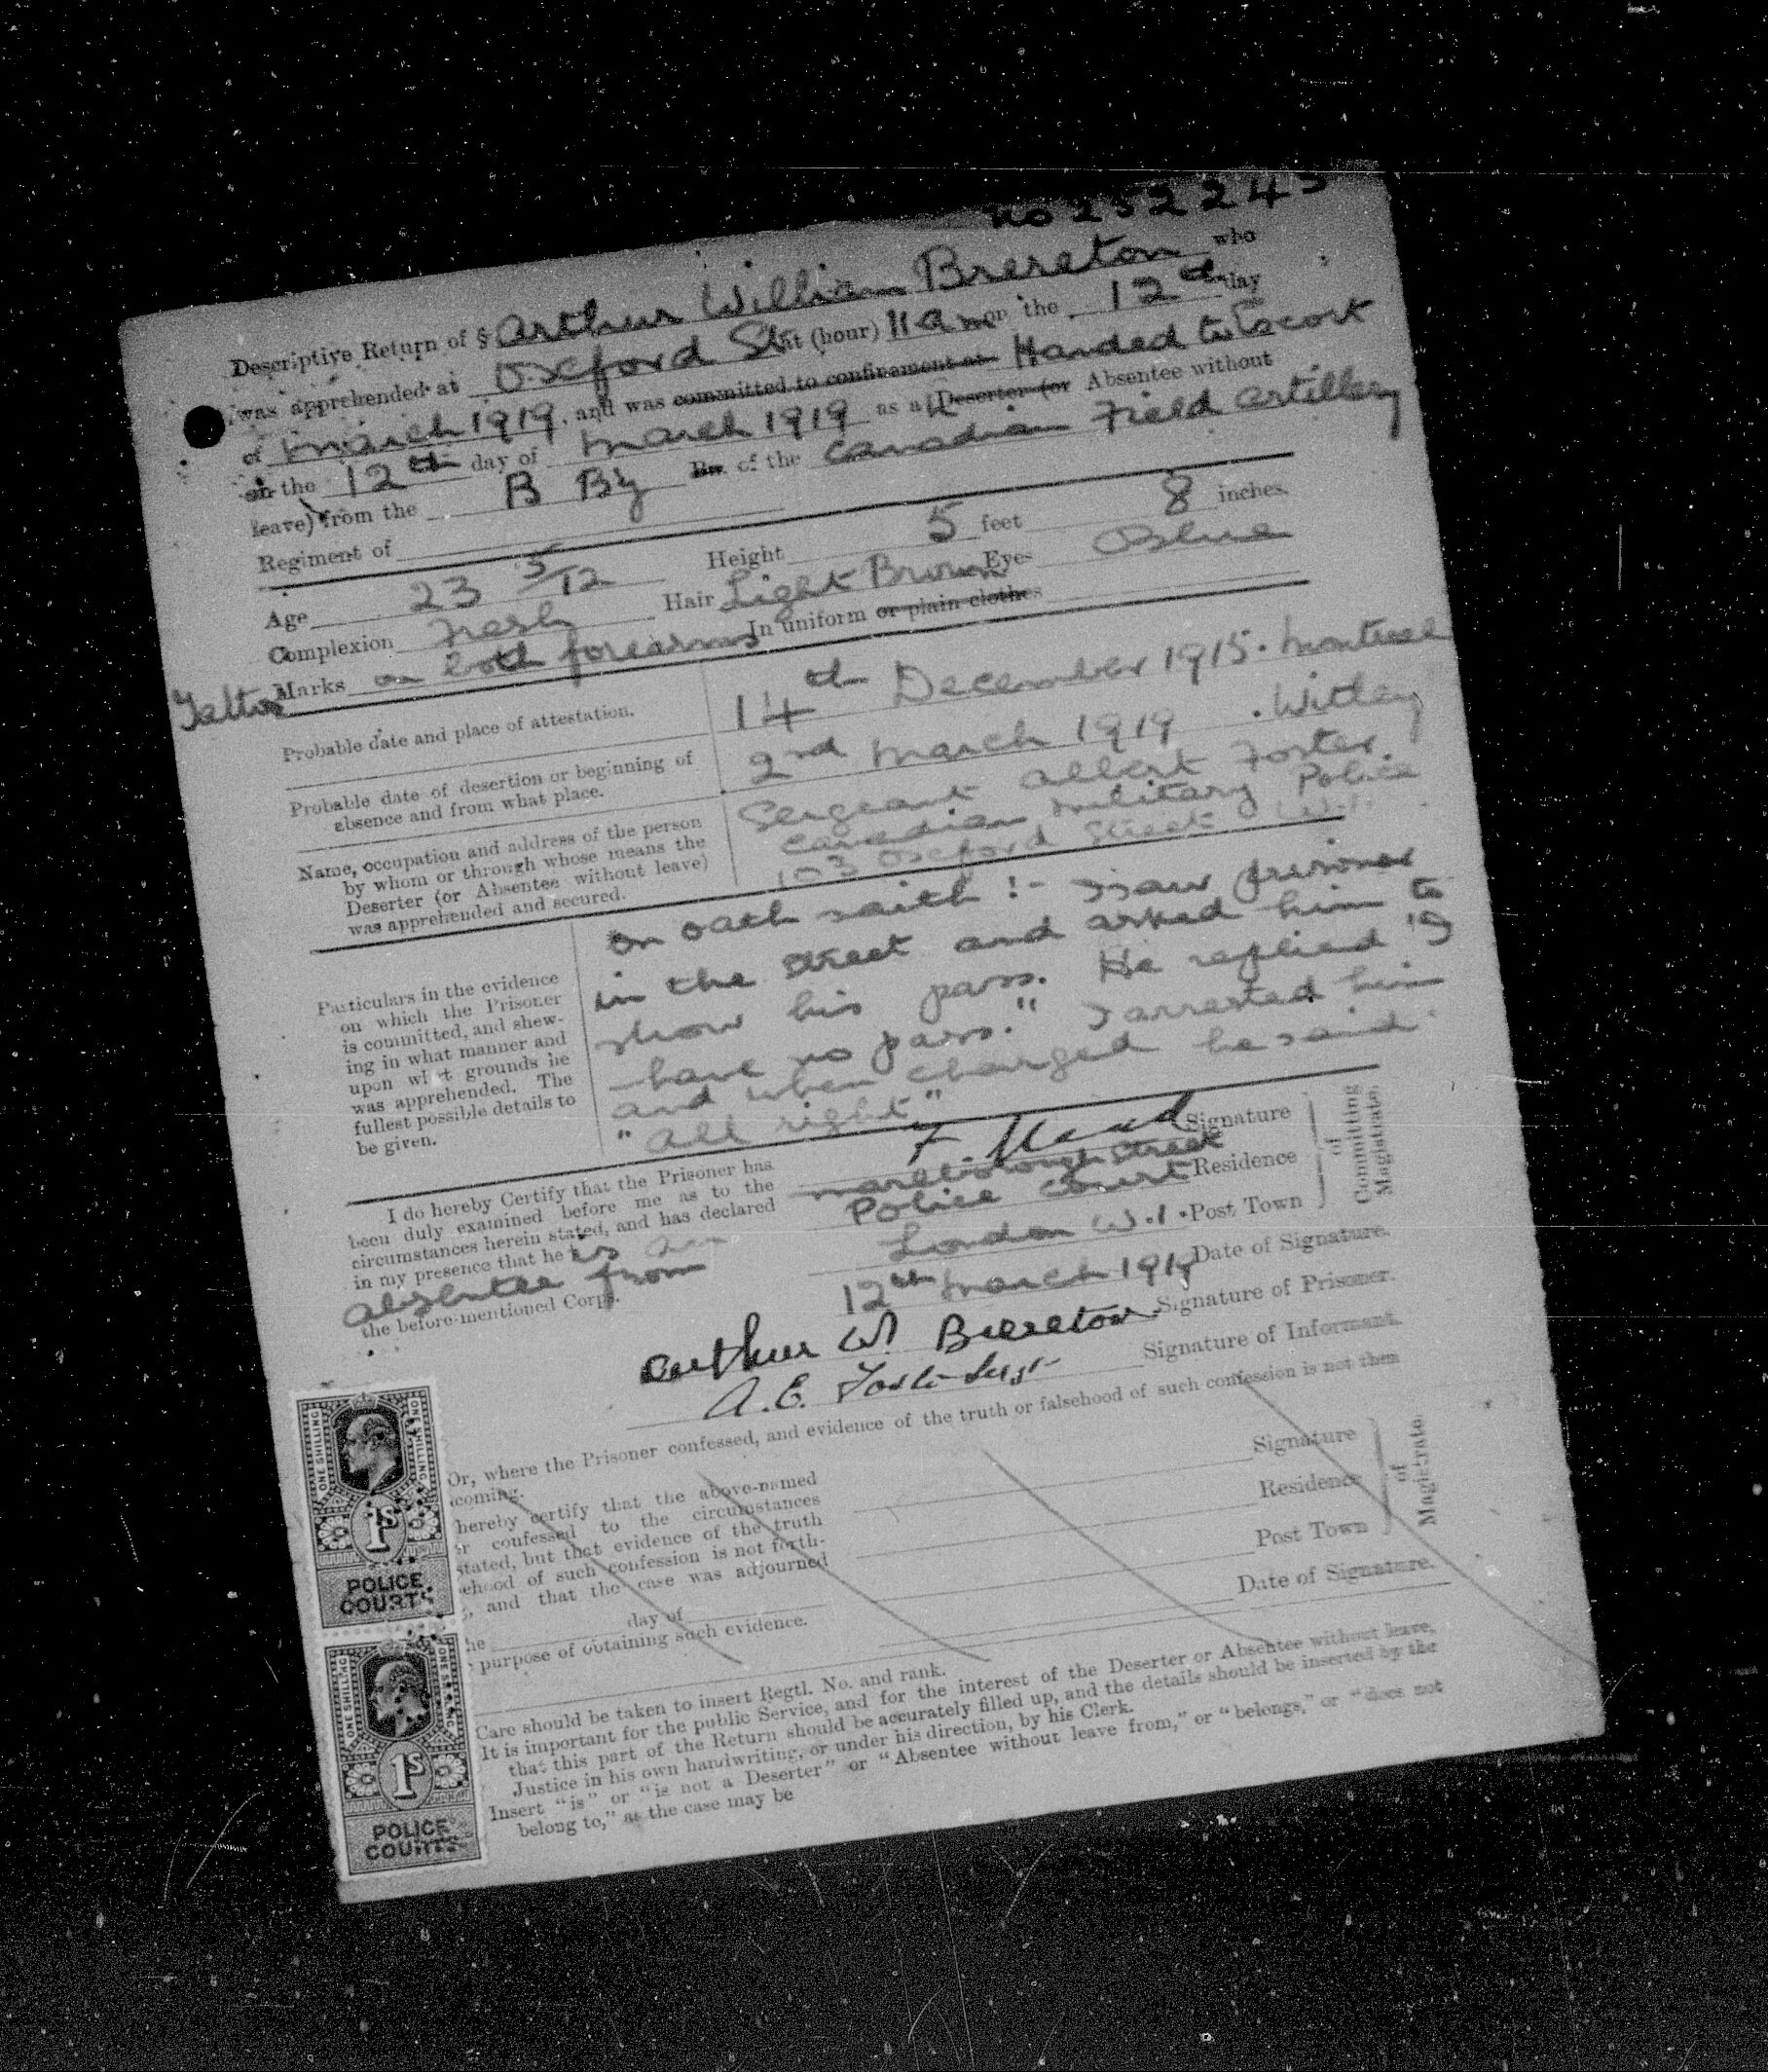 No 252243
Descriptive Return of § Arthur William Brereton who
was apprehended at Oxford St at (hour) 11 am on the 12th day
of March 1919, and was committed to confinement at Handed to Escort
on the 12th day of March 1919 as a Deserter (or Absentee without
leave) from the B By Bn. of the Canadian Field Artillery
Regiment of
Age 23 5/12 Height 5 feet 8 inches.
Complexion Fresh Hair Light Brown Eyes Blue
Tattoo Marks on both forearms In uniform or plain clothes
Probable date and place of attestation. 14th December 1915. Montreal
Probable date of desertion or beginning of
absence and from what place. 2nd March 1919. Witley
Name, occupation and address of the person
by whom or through whose means the
Deserter (or Absentee without leave)
was apprehended and secured.
Sergeant Albert Foster
Canadian Military Police
103 Oxford Street W.1.
Particulars in the evidence
on which the Prisoner
is committed, and shew-
ing in what manner and
upon what grounds he
was apprehended. The
fullest possible details to
be given.
On oath saith :- I saw prisoner
in the street and asked him to
show his pass. He replied "I
have no pass." I arrested him
and when charged he said
"All right"
I do hereby Certify that the Prisoner has
been duly examined before me as to the
circumstances herein stated, and has declared
in my presence that he is an
absentee from
the before-mentioned Corps.
F. Mead Signature
Marlborough Street
Police Court Residence
London W.1. Post Town
of
Committing
Magistrate.
12th March 1919 Date of Signature.
Arthur W. Brereton Signature of Prisoner.
A. E. Foster Sergt Signature of Informant.
Or, where the Prisoner confessed, and evidence of the truth or falsehood of such confession is not then
coming.
hereby certify that the above-named
er confessed to the circumstances
stated, but that evidence of the truth
ehood of such confession is not forth-
, and that the case was adjourned
he day of
purpose of obtaining such evidence.
Signature
Residence
Post Town
of
Magistrate.
Date of Signature.
Care should be taken to insert Regtl. No. and rank.
It is important for the public Service, and for the interest of the Deserter or Absentee without leave,
that this part of the Return should be accurately filled up, and the details should be inserted by the
Justice in his own handwriting, or under his direction, by his Clerk.
Insert "is" or "is not a Deserter" or "Absentee without leave from," or "belongs," or "does not
belong to," as the case may be
ONE SHILLING
ONE SHILLING
1S
POLICE
COURTS
ONE SHILLING
ONE SHILLING
1S
POLICE
COURTS